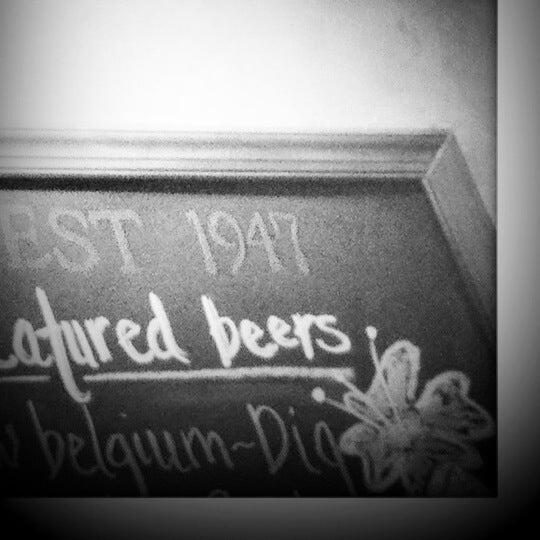 EST 1947
eatured beers
w belgium~Dig